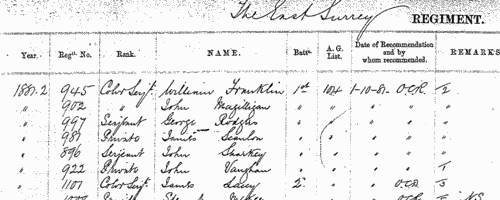 The East Surrey REGIMENT.
Year. Regtl. No. Rank. NAME. Batn. A. G. List. Date of Recommendation and by whom recommended. REMARKS
1881-2 945 Color Serjt. William Franklin 1st 104 1-10-81 O.C.R. 2
" 902 " John Magilligan " " " " "
" 997 Serjeant George Rodgers " " " " "
" 981 Private James Scanlon " " " "
" 896 Serjeant John Sharkey " " " "
" 922 Private John Vaughan " " " " 1
" 1101 Color Serjt. James Lacey 2 " " O.C.R. 3